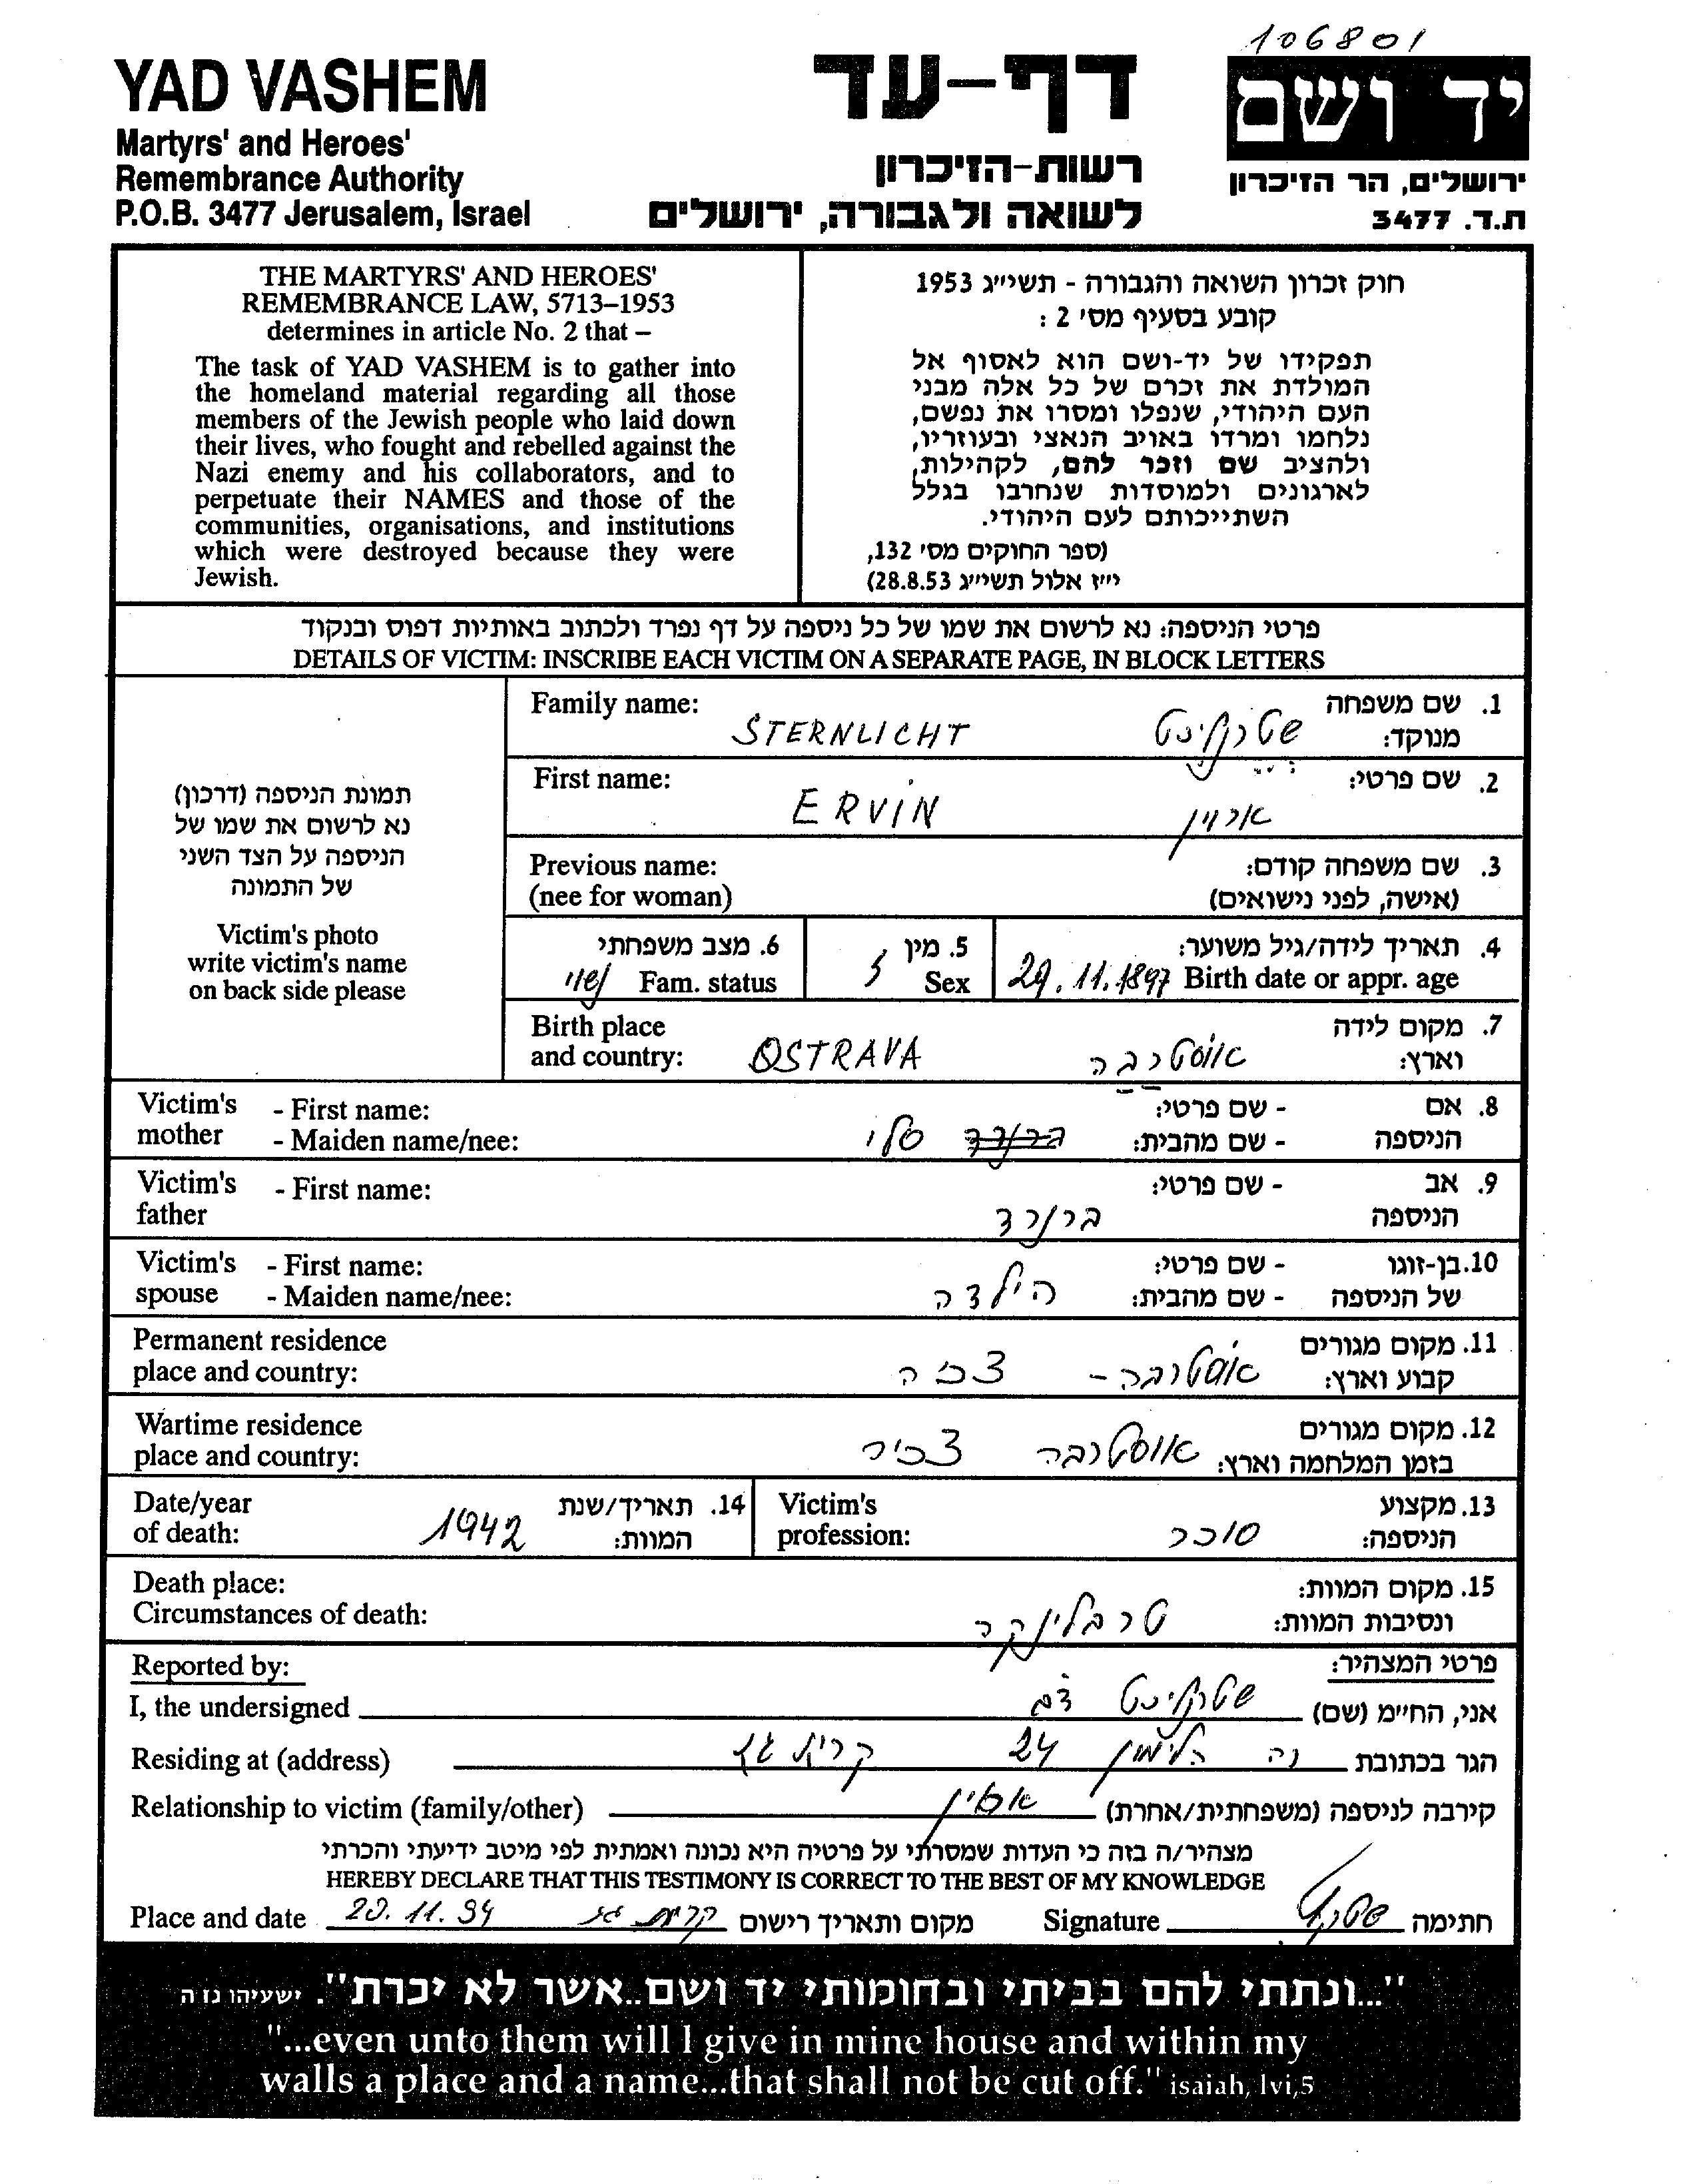 106801
YAD VASHEM
Martyrs' and Heroes'
Remembrance Authority
P.O.B. 3477 Jerusalem, Israel
דף-עד
רשות-הזיכרון
לשואה ולגבורה, ירושלים
יד ושם
ירושלים, הר הזיכרון
ת.ד. 3477
THE MARTYRS' AND HEROES'
REMEMBRANCE LAW, 5713–1953
determines in article No. 2 that –
The task of YAD VASHEM is to gather into
the homeland material regarding all those
members of the Jewish people who laid down
their lives, who fought and rebelled against the
Nazi enemy and his collaborators, and to
perpetuate their NAMES and those of the
communities, organisations, and institutions
which were destroyed because they were
Jewish.
חוק זכרון השואה והגבורה - תשי״ג 1953
קובע בסעיף מס׳ 2 :
תפקידו של יד-ושם הוא לאסוף אל
המולדת את זכרם של כל אלה מבני
העם היהודי, שנפלו ומסרו את נפשם,
נלחמו ומרדו באויב הנאצי ובעוזריו,
ולהציב שם וזכר להם, לקהילות,
לארגונים ולמוסדות שנחרבו בגלל
השתייכותם לעם היהודי.
(ספר החוקים מס׳ 132,
י״ז אלול תשי״ג 28.8.53)
פרטי הניספה: נא לרשום את שמו של כל ניספה על דף נפרד ולכתוב באותיות דפוס ובנקוד
DETAILS OF VICTIM: INSCRIBE EACH VICTIM ON A SEPARATE PAGE, IN BLOCK LETTERS
תמונת הניספה (דרכון)
נא לרשום את שמו של
הניספה על הצד השני
של התמונה
Victim's photo
write victim's name
on back side please
Family name: STERNLICHT שטרנליכט 1. שם משפחה
מנוקד:
First name: ERVIN ארווין 2. שם פרטי:
Previous name: 3. שם משפחה קודם:
(nee for woman) (אישה, לפני נישואים)
6. מצב משפחתי 5. מין 4. תאריך לידה/גיל משוער:
נשוי Fam. status ז Sex 29.11.1897 Birth date or appr. age
Birth place 7. מקום לידה
and country: OSTRAVA אוסטרבה וארץ:
Victim's - First name: - שם פרטי: 8. אם
mother - Maiden name/nee: ברנרד סלי - שם מהבית: הניספה
Victim's - First name: - שם פרטי: 9. אב
father ברנרד הניספה
Victim's - First name: - שם פרטי: 10. בן-זוגו
spouse - Maiden name/nee: הילדה - שם מהבית: של הניספה
Permanent residence 11. מקום מגורים
place and country: אוסטרבה - צכיה קבוע וארץ:
Wartime residence 12. מקום מגורים
place and country: אוסטרבה צכיה בזמן המלחמה וארץ:
Date/year 14. תאריך/שנת Victim's 13. מקצוע
of death: 1942 המוות: profession: סוכר הניספה:
Death place: 15. מקום המוות:
Circumstances of death: טרבלינקה ונסיבות המוות:
Reported by: פרטי המצהיר:
I, the undersigned שטרנליכט אני, החי״מ (שם)
Residing at (address) 24 קרית גת הגר בכתובת
Relationship to victim (family/other) אחיין קירבה לניספה (משפחתית/אחרת)
מצהיר/ה בזה כי העדות שמסרתי על פרטיה היא נכונה ואמתית לפי מיטב ידיעתי והכרתי
HEREBY DECLARE THAT THIS TESTIMONY IS CORRECT TO THE BEST OF MY KNOWLEDGE
Place and date 20.11.94 קרית גת מקום ותאריך רישום Signature חתימה
"...ונתתי להם בביתי ובחומותי יד ושם...אשר לא יכרת". ישעיהו נו ה
"...even unto them will I give in mine house and within my
walls a place and a name...that shall not be cut off." isaiah, lvi,5